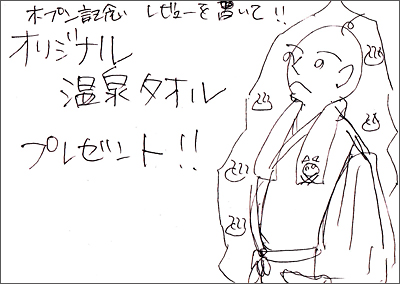 オープン記念 レビューを書いて!!
オリジナル
温泉タオル
プレゼント!!